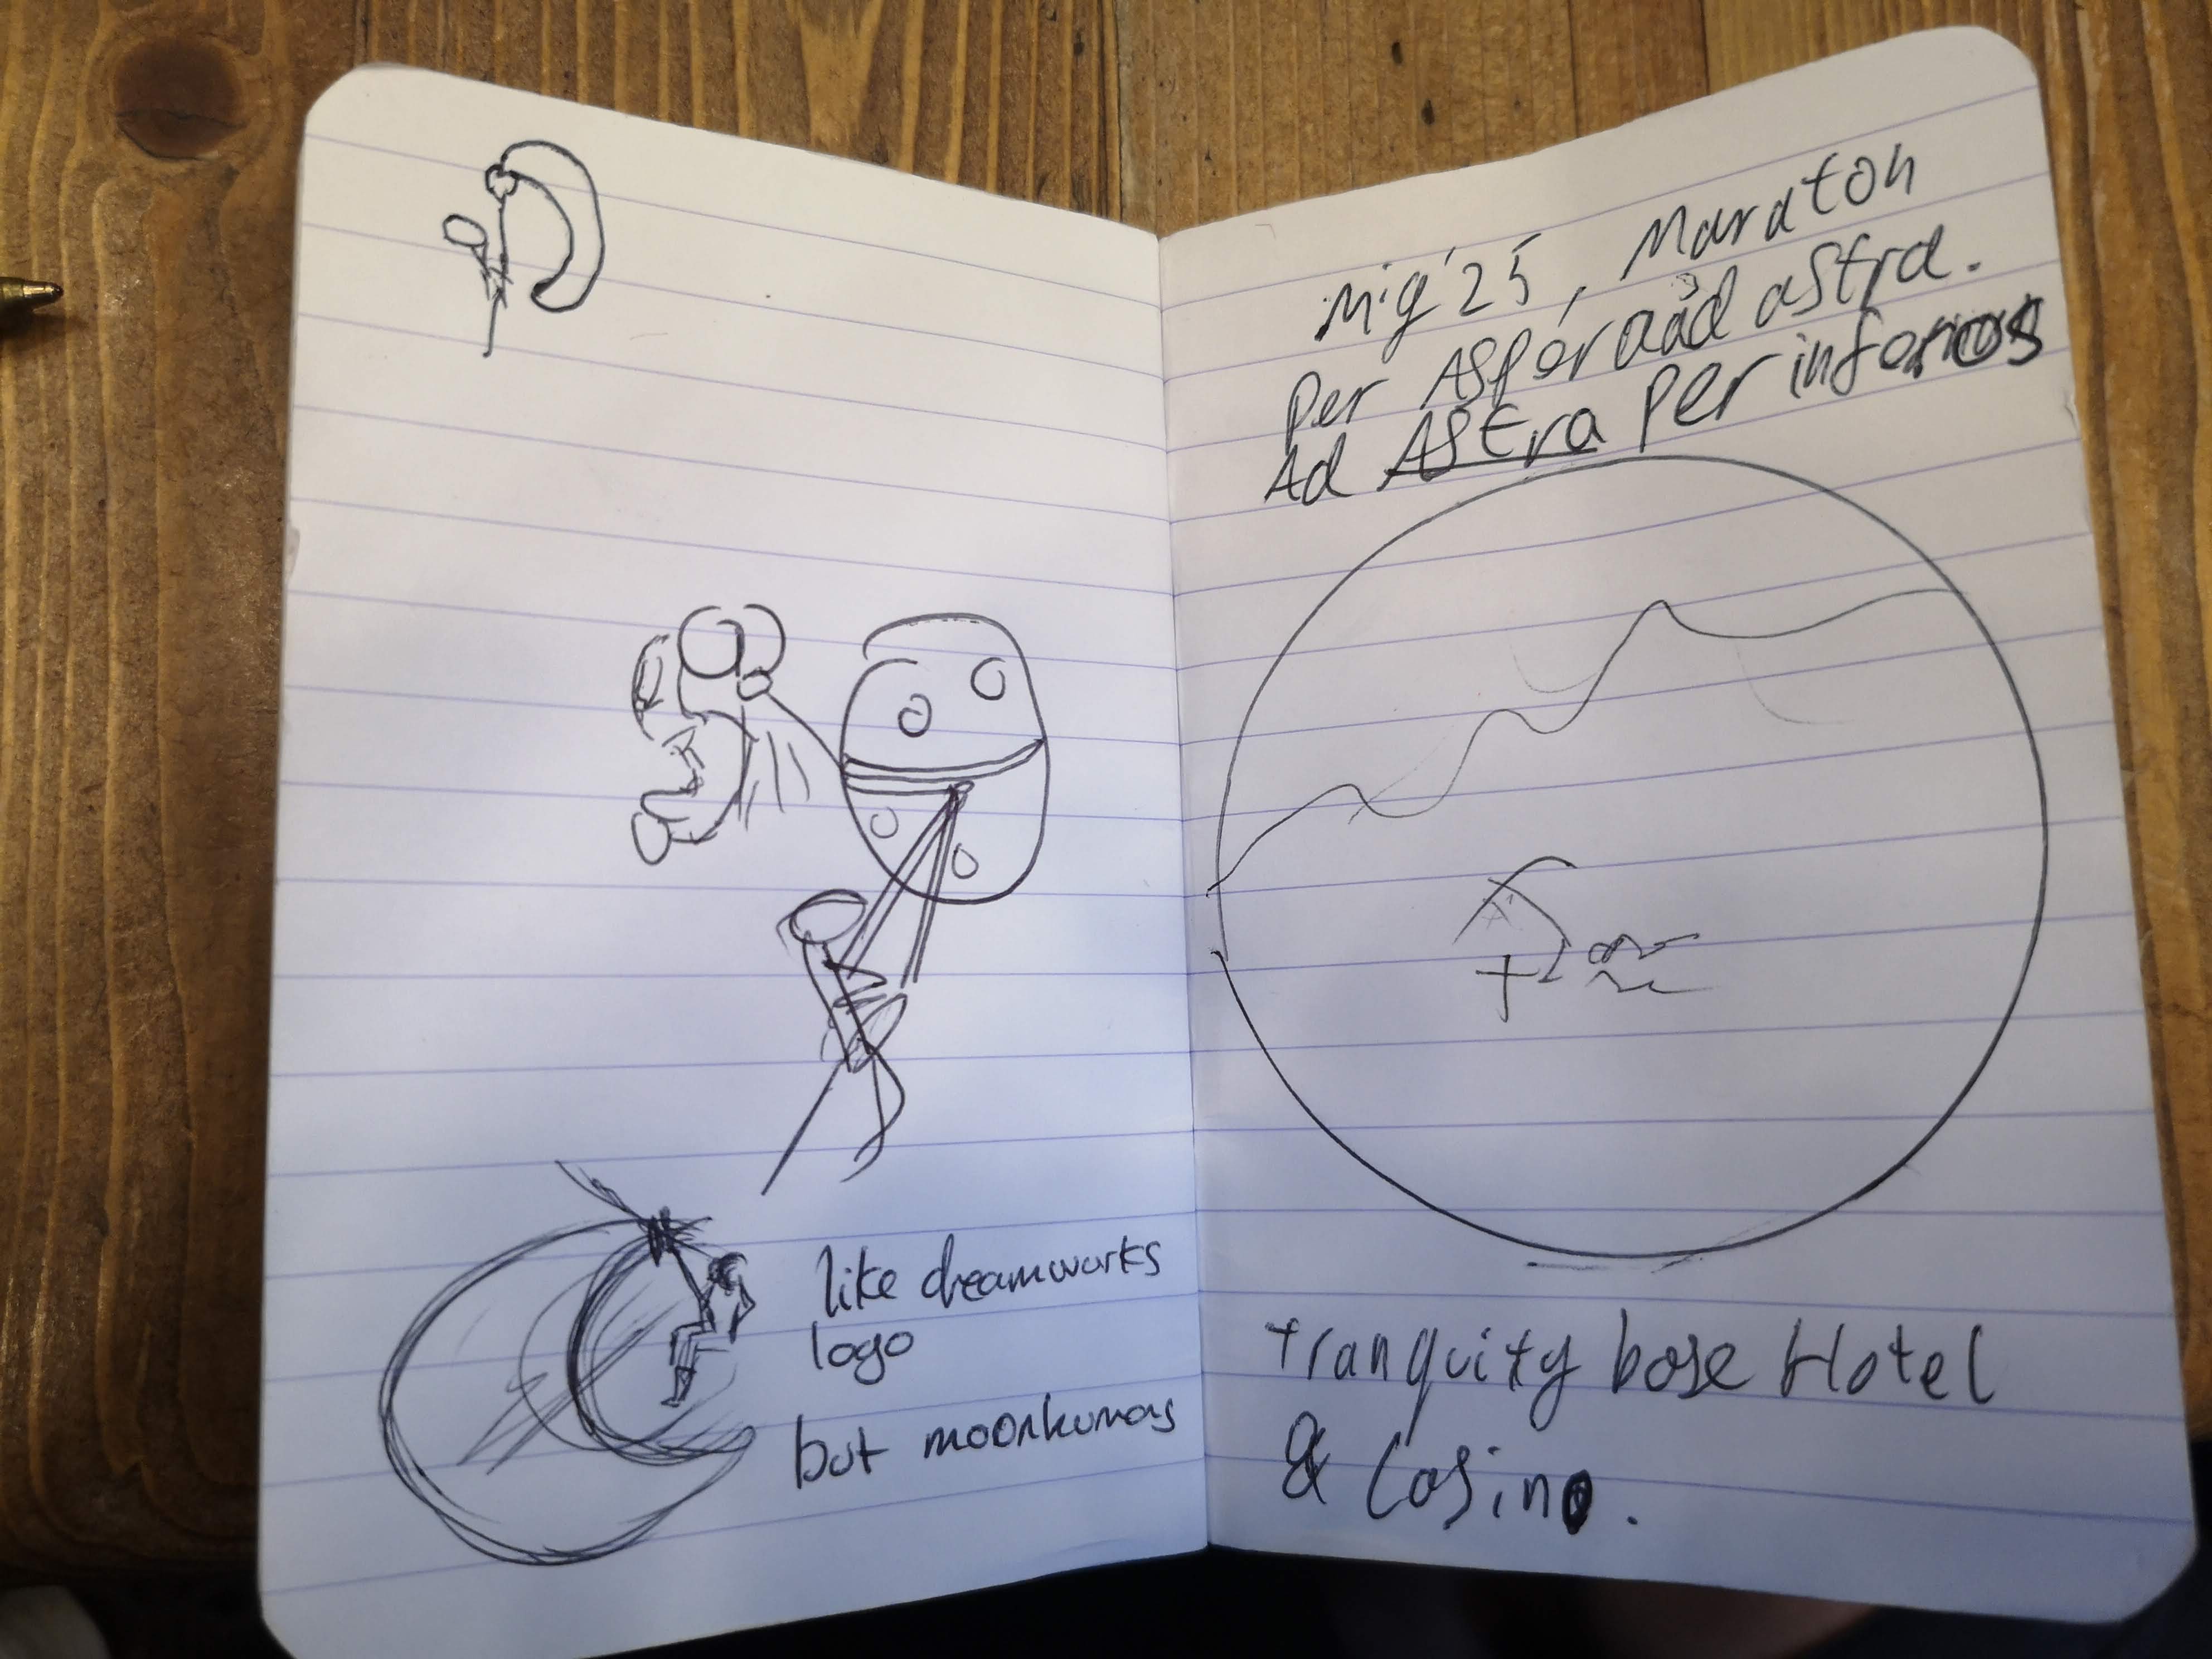 like dreamworks
logo
but moonhumans
Mig'25, Maraton
Per Aspera ad astra.
Ad Astra per infernos
Tranquity base Hotel
& Casino.